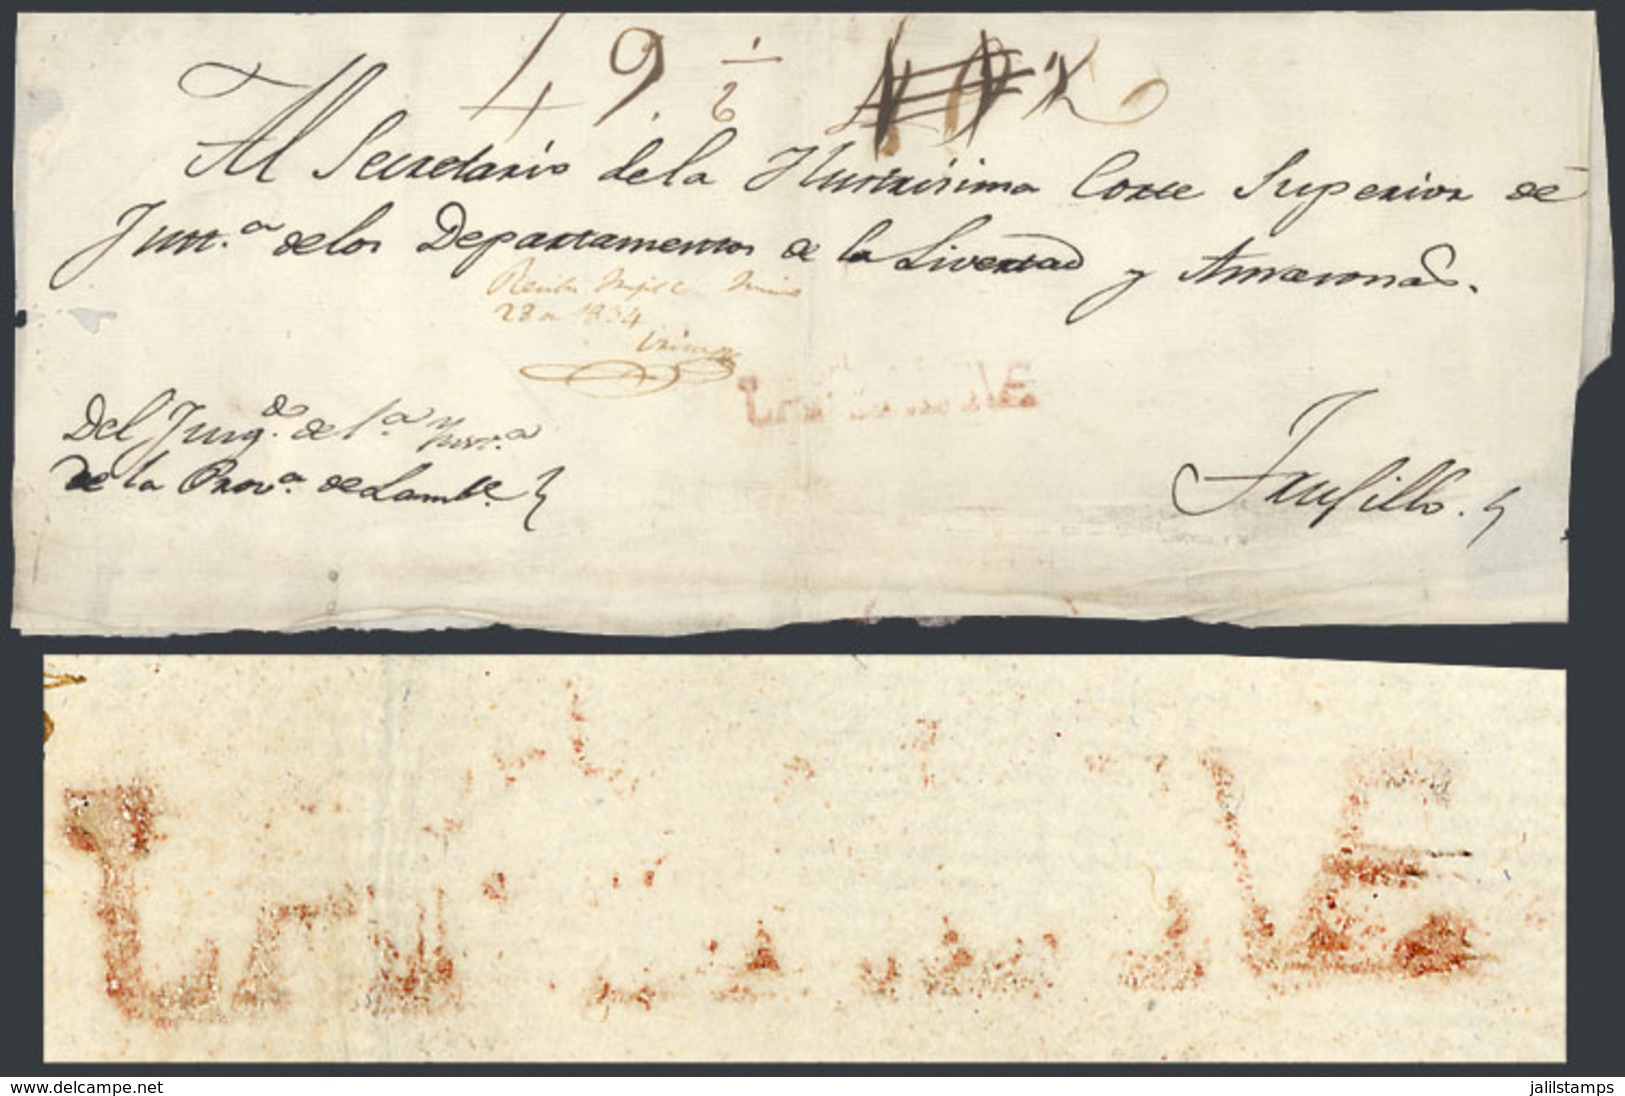 49. 1/2
Al Secretario de la Ilustrisima Corte Superior de
Just.a de los Departamentos de la Livertad y Amazonas.
28 de 1834
Del Juzg.do de 1.a Ynst.a
de la Prov.a de Lambe.
Trujillo.
www.delcampe.net
jalilstamps